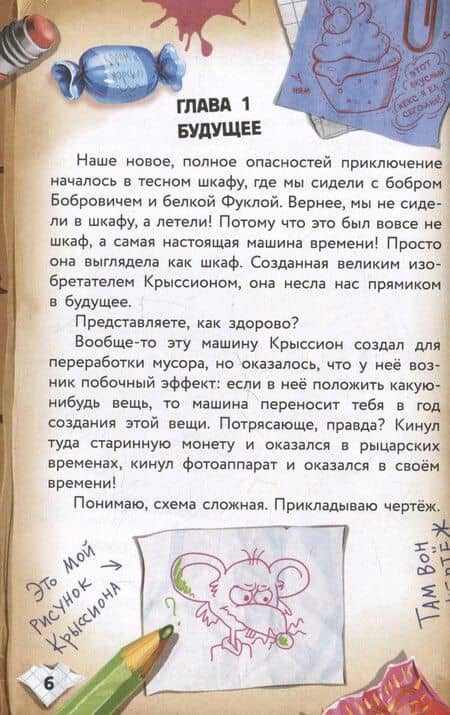 ЭТОТ
ВКУСНЫЙ
КЕКС Я ЕЛ
СЕГОДНЯ!
НЯМ
ГЛАВА 1
БУДУЩЕЕ
Наше новое, полное опасностей приключение
началось в тесном шкафу, где мы сидели с бобром
Бобровичем и белкой Фуклой. Вернее, мы не сиде-
ли в шкафу, а летели! Потому что это был вовсе не
шкаф, а самая настоящая машина времени! Просто
она выглядела как шкаф. Созданная великим изо-
бретателем Крыссионом, она несла нас прямиком
в будущее.
Представляете, как здорово?
Вообще-то эту машину Крыссион создал для
переработки мусора, но оказалось, что у неё воз-
ник побочный эффект: если в неё положить какую-
нибудь вещь, то машина переносит тебя в год
создания этой вещи. Потрясающе, правда? Кинул
туда старинную монету и оказался в рыцарских
временах, кинул фотоаппарат и оказался в своём
времени!
Понимаю, схема сложная. Прикладываю чертёж.
Это мой
рисунок
Крыссиона
?
ТАМ ВОН
ЧЕРТЁЖ
6